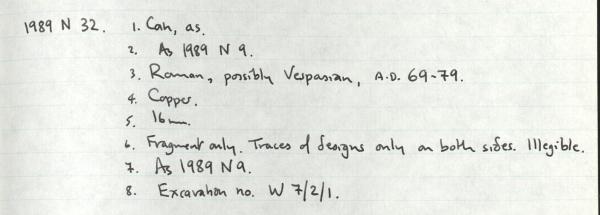 1989 N 32. 1. Coin, as.
2. As 1989 N 9.
3. Roman, possibly Vespasian, A.D. 69-79.
4. Copper.
5. 16mm.
6. Fragment only. Traces of designs only on both sides. Illegible.
7. As 1989 N9.
8. Excavation no. W 7/2/1.